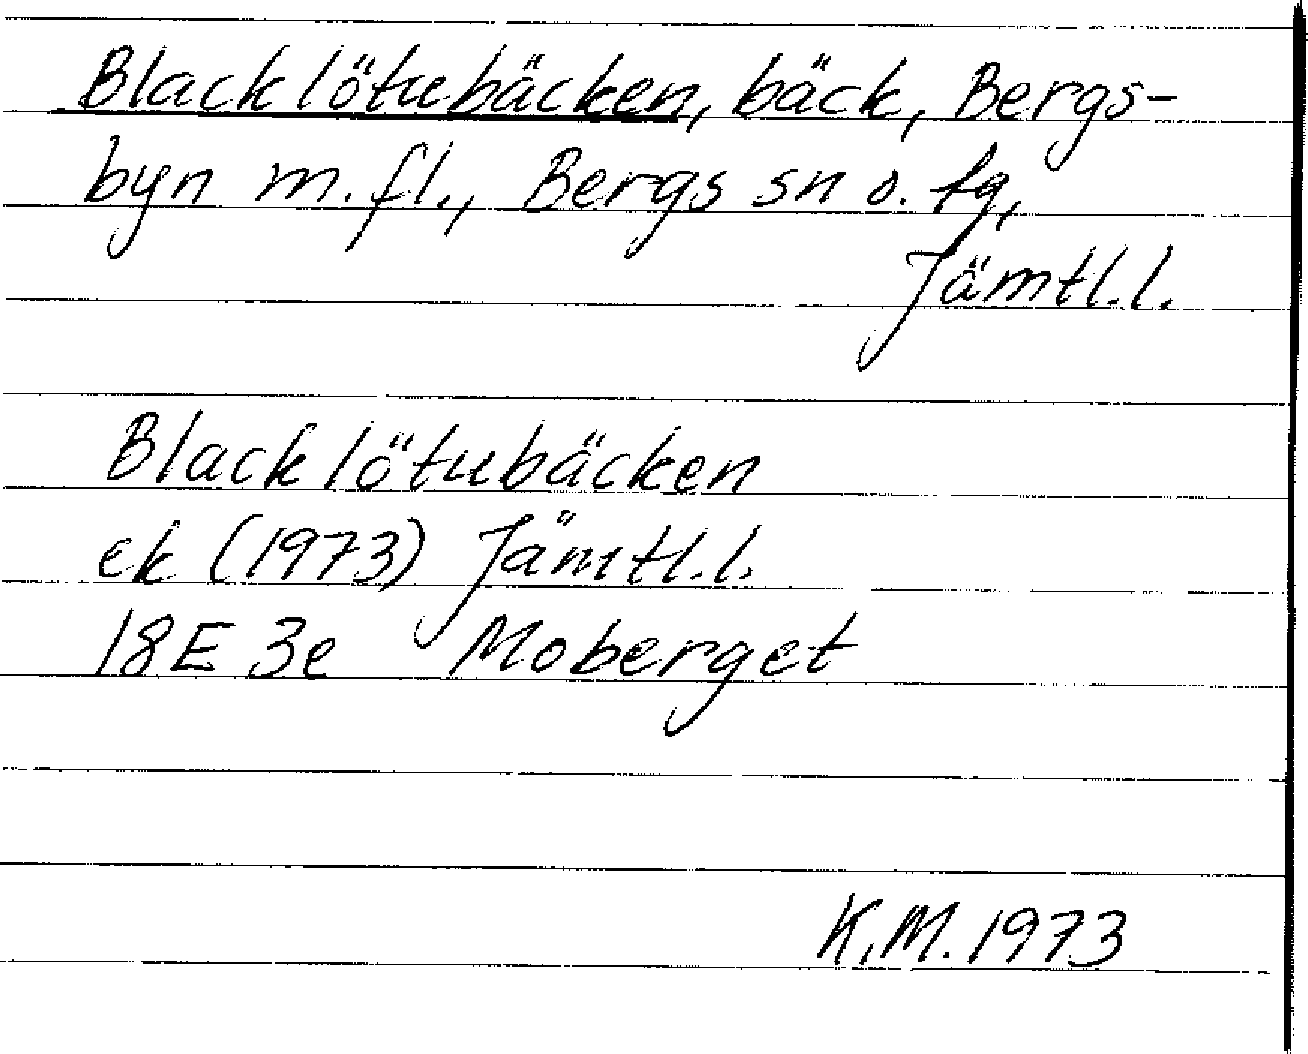 Blacklötubäcken, bäck, Bergs-
byn m.fl., Bergs sn o. tg,
Jämtl.l.
Blacklötubäcken
ek (1973) Jämtl.l.
18E 3e Moberget
K.M. 1973